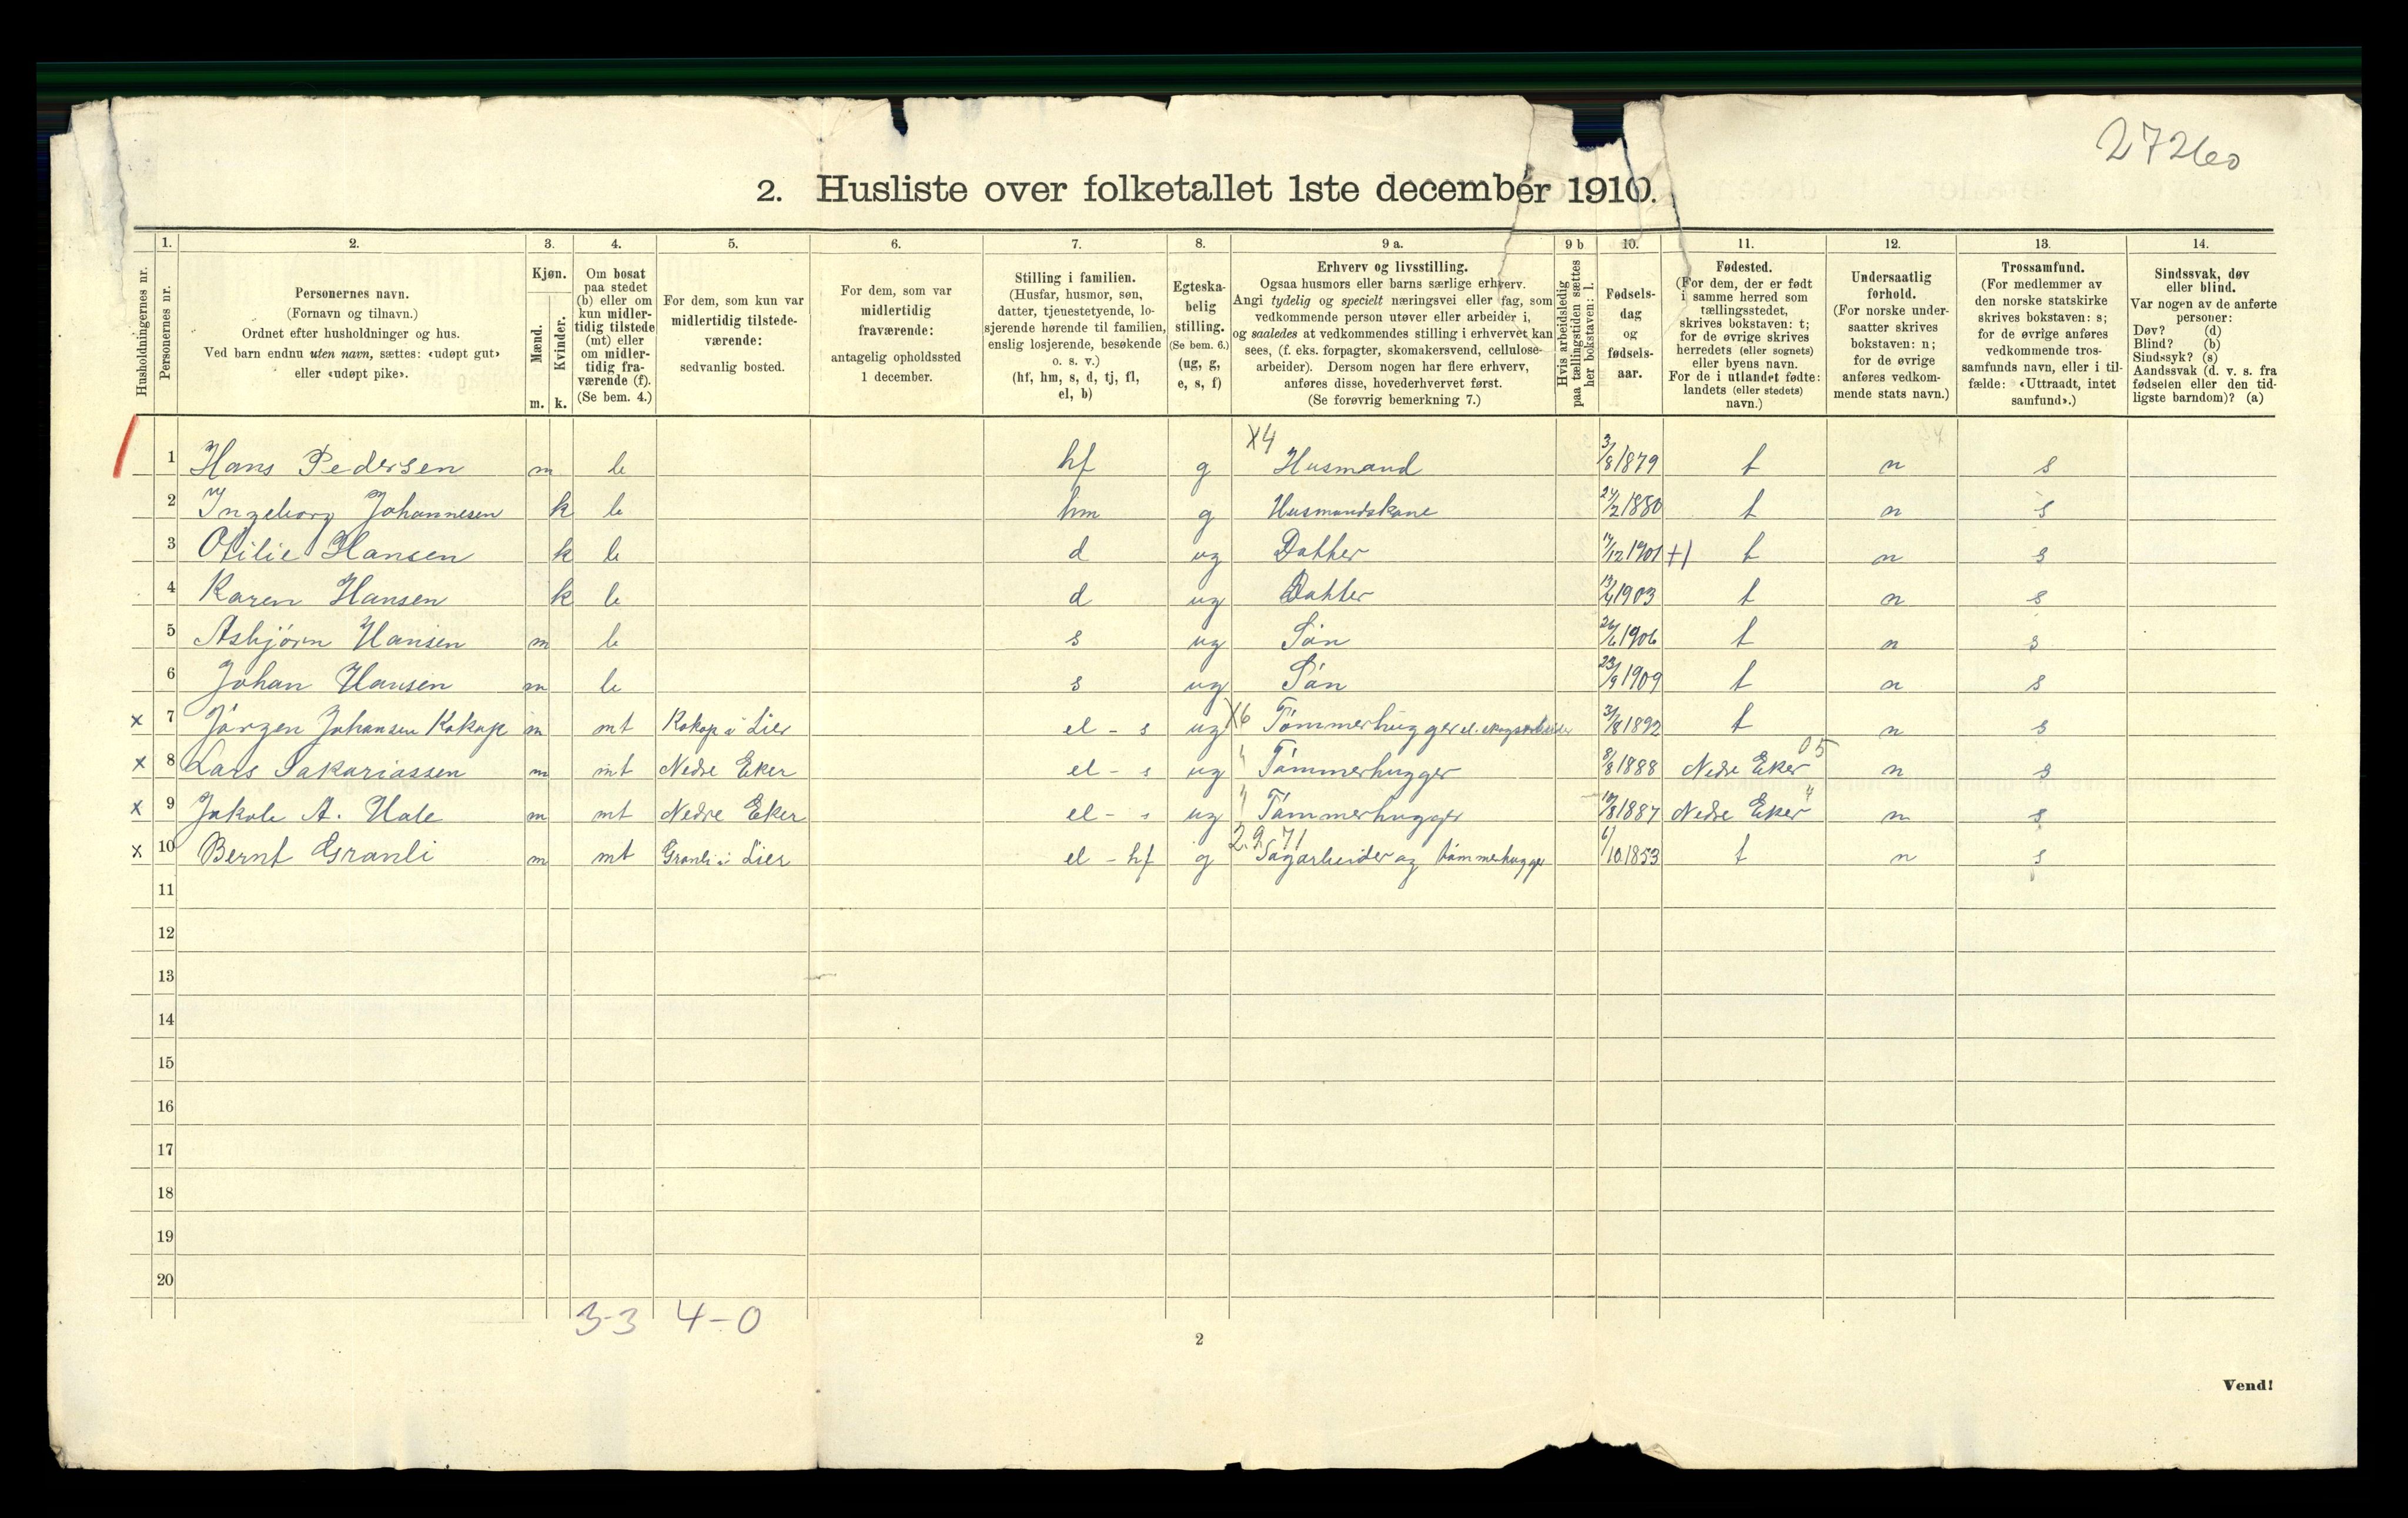 27260
2. Husliste over folketallet 1ste december 1910.
Husholdningernes nr.
1.
Personernes nr.
2.
Personernes navn.
(Fornavn og tilnavn.)
Ordnet efter husholdninger og hus.
Ved barn endnu uten navn, sættes: «udøpt gut»
eller «udøpt pike».
3.
Kjøn.
Mænd.
Kvinder.
m. k.
4.
Om bosat
paa stedet
(b) eller om
kun midler-
tidig tilstede
(mt) eller
om midler-
tidig fra-
værende (f).
(Se bem. 4.)
5.
For dem, som kun var
midlertidig tilstede-
værende:
sedvanlig bosted.
6.
For dem, som var
midlertidig
fraværende:
antagelig opholdssted
1 december.
7.
Stilling i familien.
(Husfar, husmor, søn,
datter, tjenestetyende, lo-
sjerende hørende til familien,
enslig losjerende, besøkende
o. s. v.)
(hf, hm, s, d, tj, fl,
el, b)
8.
Egteska-
belig
stilling.
(Se bem. 6.)
(ug, g,
e, s, f)
9 a.
Erhverv og livsstilling.
Ogsaa husmors eller barns særlige erhverv.
Angi tydelig og specielt næringsvei eller fag, som
vedkommende person utøver eller arbeider i,
og saaledes at vedkommendes stilling i erhvervet kan
sees, (f. eks. forpagter, skomakersvend, cellulose-
arbeider). Dersom nogen har flere erhverv,
anføres disse, hovederhvervet først.
(Se forøvrig bemerkning 7.)
9 b
Hvis arbeidsledig
paa tællingstiden sættes
her bokstaven: l.
10.
Fødsels-
dag
og
fødsels-
aar.
11.
Fødested.
(For dem, der er født
i samme herred som
tællingsstedet,
skrives bokstaven: t;
for de øvrige skrives
herredets (eller sognets)
eller byens navn.
For de i utlandet fødte:
landets (eller stedets)
navn.)
12.
Undersaatlig
forhold.
(For norske under-
saatter skrives
bokstaven: n;
for de øvrige
anføres vedkom-
mende stats navn.)
13.
Trossamfund.
(For medlemmer av
den norske statskirke
skrives bokstaven: s;
for de øvrige anføres
vedkommende tros-
samfunds navn, eller i til-
fælde: «Uttraadt, intet
samfund».)
14.
Sindssvak, døv
eller blind.
Var nogen av de anførte
personer:
Døv? (d)
Blind? (b)
Sindssyk? (s)
Aandssvak (d. v. s. fra
fødselen eller den tid-
ligste barndom)? (a)
X4
1 Hans Pedersen m b hf g Husmand 3/8 1879 t n s
2 Ingeborg Johannesen k b hm g Husmandskone 24/2 1880 t n s
3 Otilie Hansen k b d ug Datter 17/12 1901 +1 t n s
4 Karen Hansen k b d ug Datter 13/4 1903 t n s
5 Asbjørn Hansen m b s ug Søn 26/6 1906 t n s
6 Johan Hansen m b s ug Søn 23/9 1909 t n s
x 7 Jørgen Johansen Kokop m mt Kokop i Lier el - s ug X6 Tømmerhugger el. skogsarbeider 3/8 1892 t n s
05
x 8 Lars Sakariassen m mt Nedre Eker el - s ug " Tømmerhugger 8/8 1888 Nedre Eker n s
x 9 Jakob A. Hole m mt Nedre Eker el - s ug " Tømmerhugger 19/8 1887 Nedre Eker " n s
2.9.71
x 10 Bernt Granli m mt Granli i Lier el - hf g Sagarbeider og tømmerhugger 6/10 1853 t n s
11
12
13
14
15
16
17
18
19
20
3-3 4-0
2
Vend!